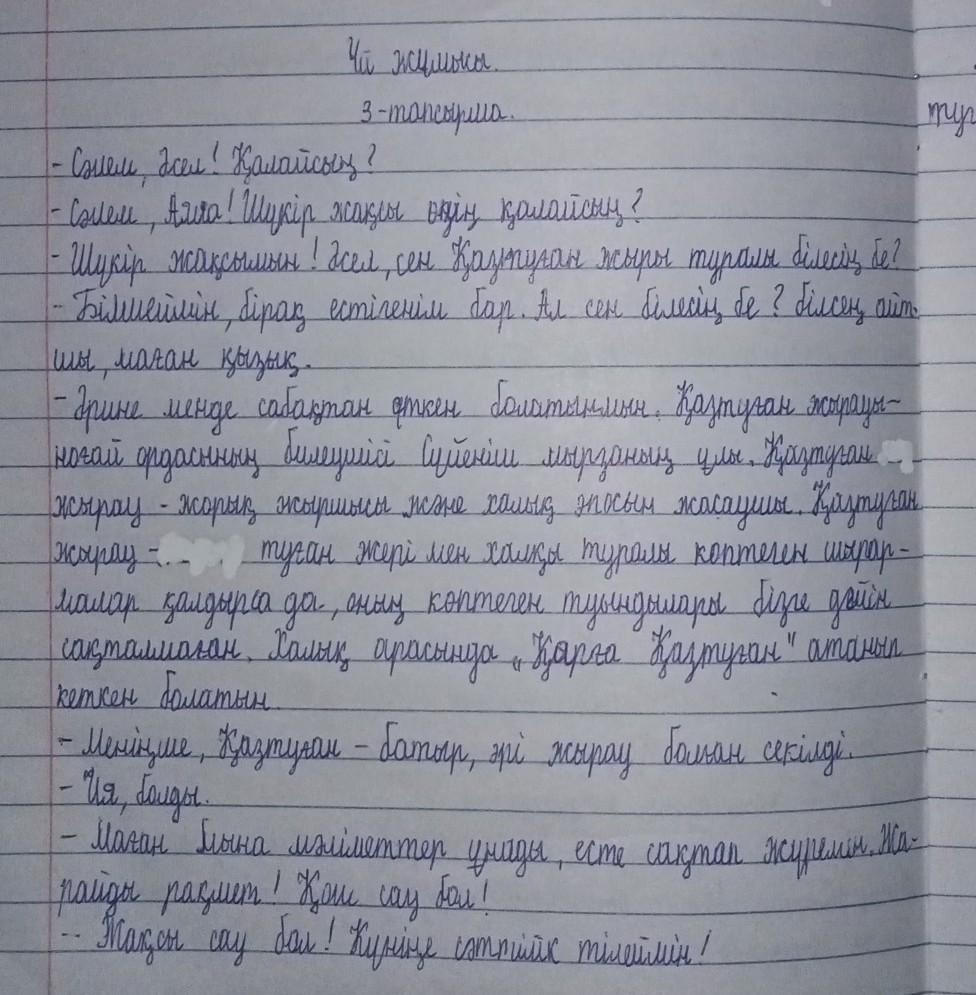 Үй жұмысы.
3-тапсырма.
тұр
- Сәлем, Әсел! Қалайсың?
- Сәлем, Аяла! Шүкір жақсы өзің қалайсың?
- Шүкір жақсымын! Әсел, сен Қазтуған жыры туралы білесің бе?
- Білмеймін, бірақ естігенім бар. Ал сен білесің бе? білсең айт-
шы, маған қызық.
- Әрине менде сабақтан өткен болатынмын. Қазтуған жырауы-
ноғай ордасының билеушісі Сүйеніш мырзаның ұлы. Қазтуған
жырау - жорық жыршысы және халық эпосын жасаушы. Қазтуған
жырау - туған жері мен халқы туралы көптеген шығар-
малар қалдырса да, оның көптеген туындылары бізге дейін
сақталмаған. Халық арасында „Қарға Қазтуған" атанып
кеткен болатын.
- Меніңше, Қазтуған - батыр, әрі жырау болған секілді.
- Ия, болды.
- Маған мына мәліметтер ұнады, есте сақтап жүремін. Жа-
райды рақмет! Қош сау бол!
-- Жақсы сау бол! Күніңе сәттілік тілеймін!